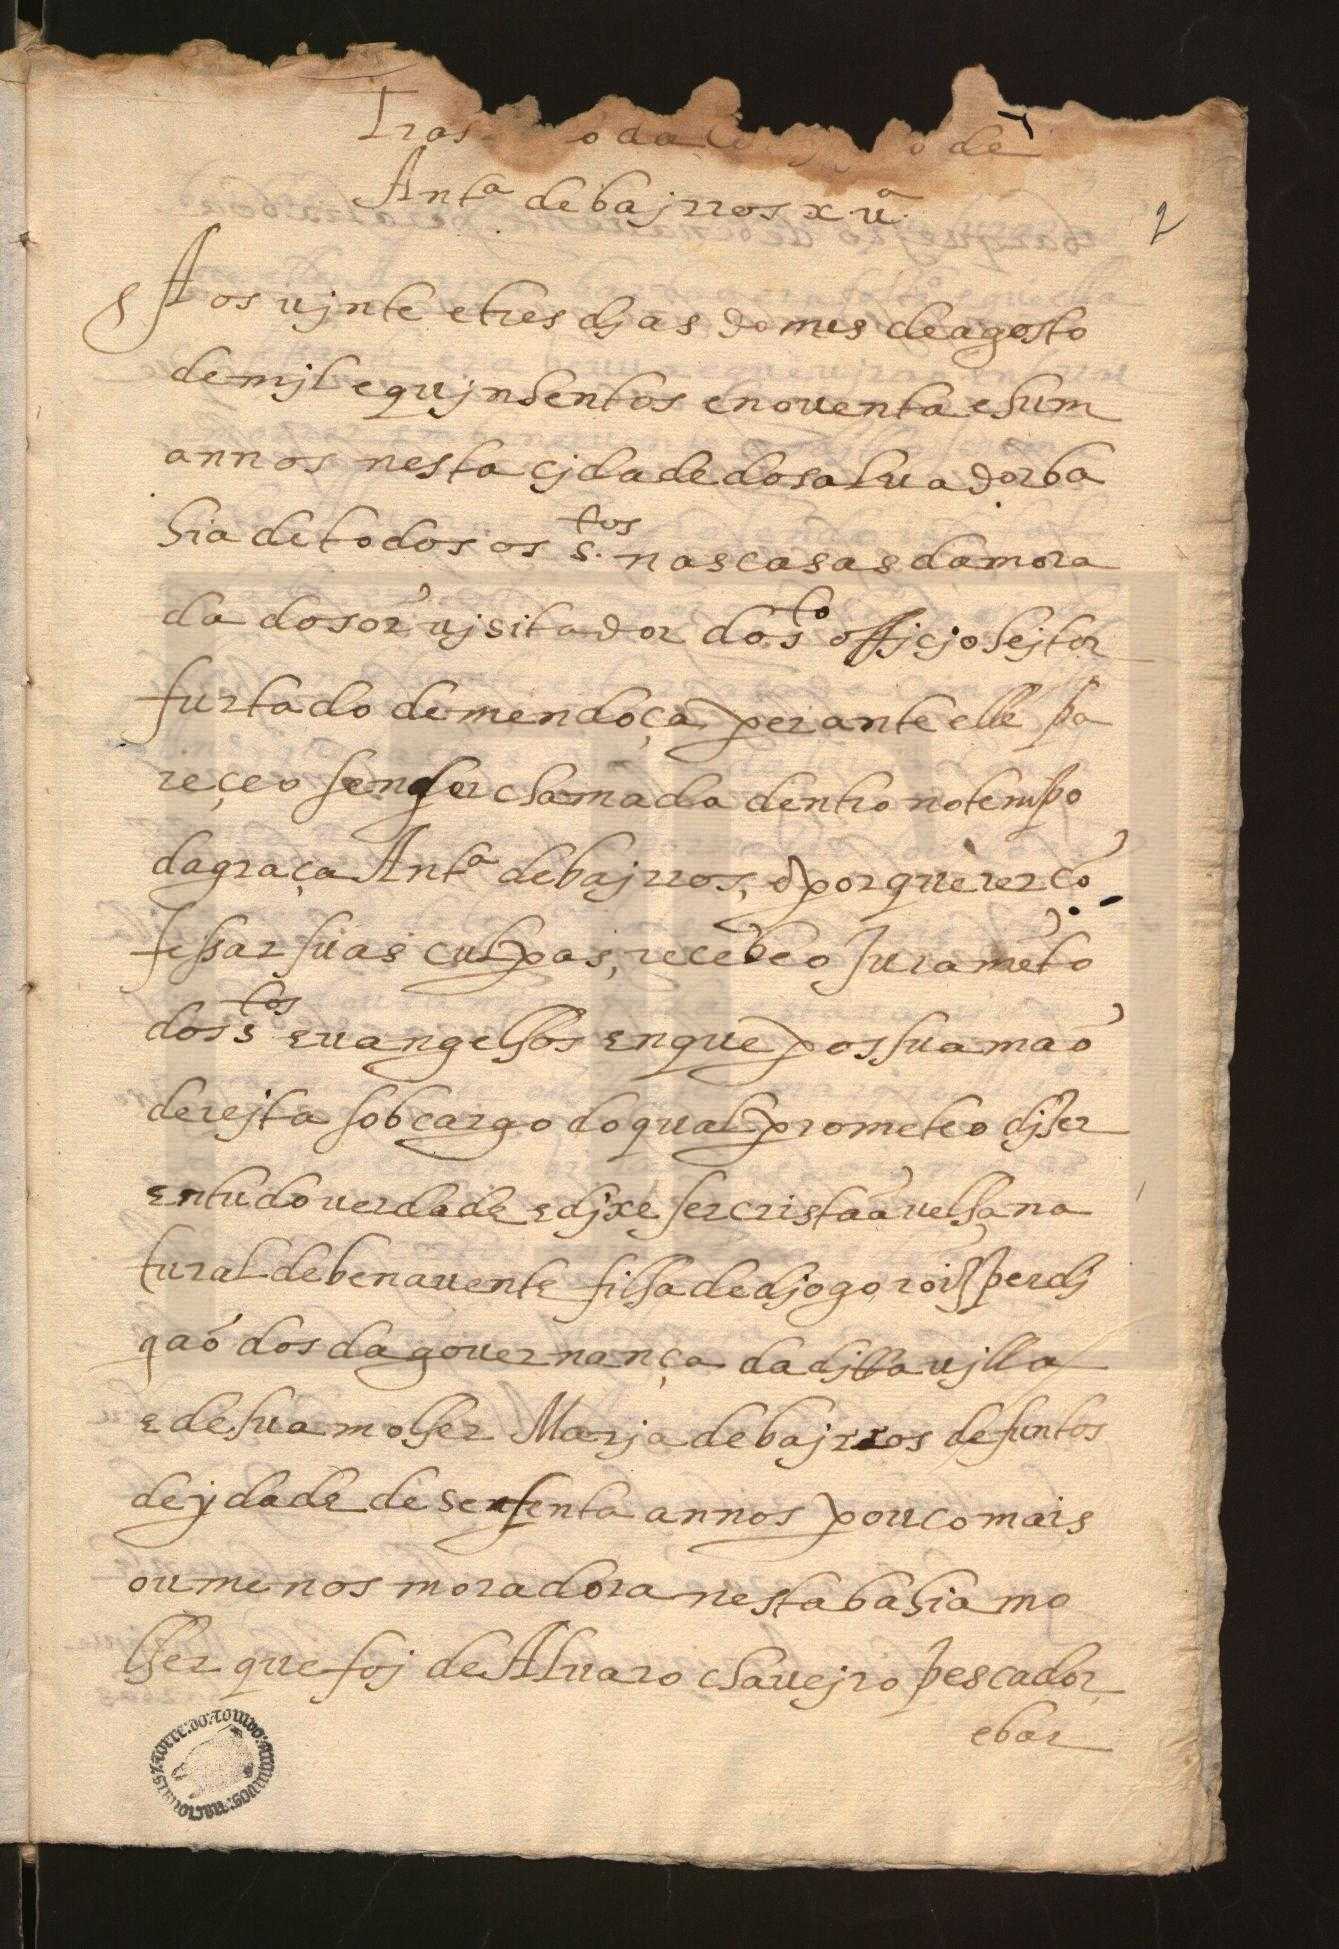 Tras o da o de
Ant.ª de bajrros x ṽ.
2
Aos vjnte e tres djas do mes de agosto
de mjl e qujnhentos e noventa e hum
annos nesta çjdade do salvador ba
hia de todos os s.tos nas casas da mora
da do sor vjsitador do s.to offjçjo hejtor
furtado de mendoça perante elle pa
reçeo sen ser chamada dentro no tempo
da graça Ant.ª de bajrros, e por querer cõ
fessar suas culpas, recebeo Juramẽto
dos s.tos evangelhos en que pos sua maõ
derejta sob cargo do qual prometeo djser
en tudo verdade e djxe ser cristaã velha na
tural de benavente filha de djogo roiz perdj
gaõ dos da governança da djtta vjlla
e de sua molher Marja de bajrros defuntos
de ydade de sesenta annos pouco mais
ou menos moradora nesta bahia mo
lher que foj de Alvaro chavejro pescador,
e bar
TORRE:DO:TOMBO:ARQUIVOS:NACIONAIS